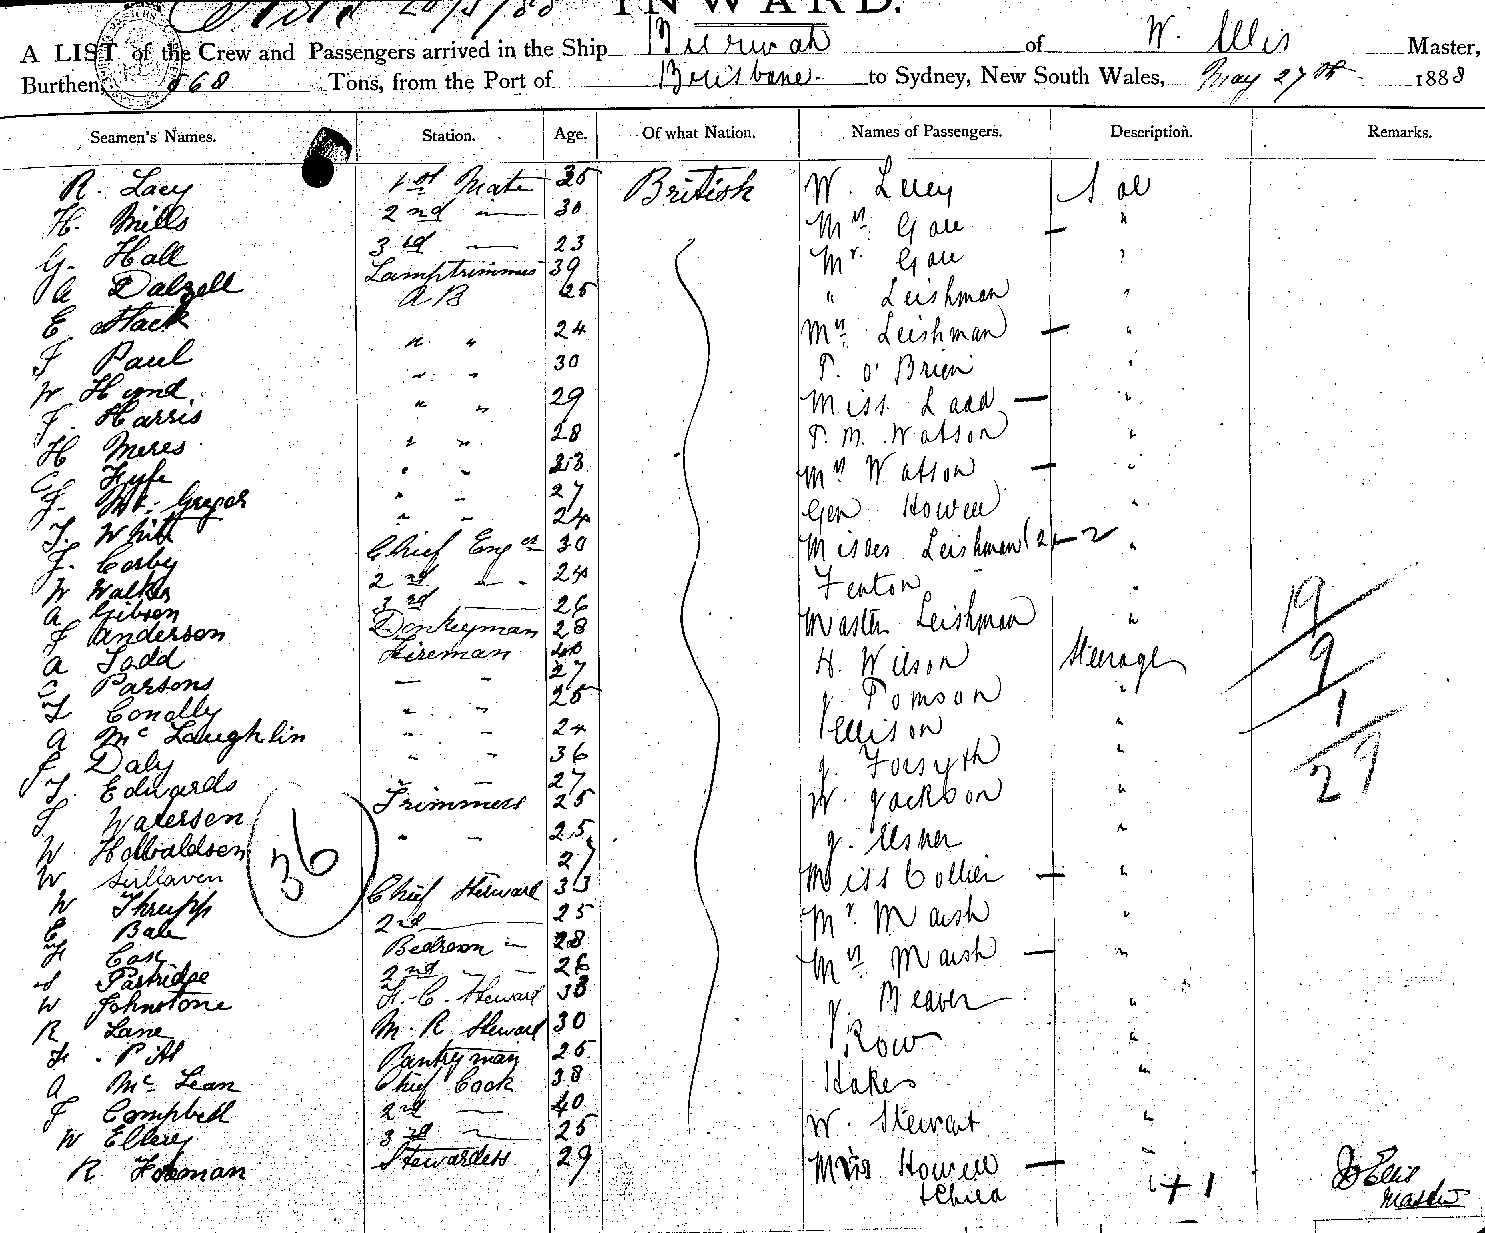 28/5/88 INWARD.
A LIST of the Crew and Passengers arrived in the Ship Burwah of W. Ellis Master,
Burthen, 568 Tons, from the Port of Brisbane to Sydney, New South Wales, May 27th 1888
Seamen's Names. Station. Age. Of what Nation. Names of Passengers. Description. Remarks.
R. Lacy 1st Mate 35 British W. Lucy Sal
H. Mills 2nd — 30 Mrs. Gore — "
G. Hall 3rd — 23 Mr. Gore "
A Dalzell Lamptrimmer 39 " Leishman "
E Stack A B 25 Mrs Leishman — "
F Paul " " 24 T. O'Brien "
W Hynd " " 30 Miss Ladd — "
F. Harris " " 29 T. M. Watson "
H Meres " " 28 Mrs Watson — "
G Fyfe " " 23 Geo Howell "
J. Mc. Gregor " " 27 Misses Leishman (2) — 2 "
T. White " " 24 Fenton "
J. Corby Chief Engr 30 Master Leishman "
W Walker 2nd — 24 H. Wilson Steerage
A Gibson 3rd — 26 J. Tomson "
J Anderson Donkeyman 28 Ellison "
A Todd Fireman J. Forsyth "
C Parsons — — 27 W. Jackson "
T Conolly " " 25 J. Usher "
A Mc Laughlin " " 24 Miss Collier — "
J Daly " " 36 Mr. Marsh "
T. Edwards — — 27 Mrs. Marsh — "
T Waterson Trimmers 25 J. Beaver "
W. Holbaldsen " — 25 Row "
W Sullaven 27 Hakes "
W Thrupp Chief Steward 33 W. Stewart "
C Bale 2nd — 25 Mrs Howell —
F Cox Bedroom — 28 + Child + 1
S Partridge 2nd — — 26
W Johnstone F. C. Steward 38
R Lane M. R Steward 30
F. Pitt Pantryman 25
A Mc Lean Chief Cook 38
F Campbell 2nd — 40
W Ellery 3rd — 25
R Forman Stewardess 29
36
19
9
1
29
Ellis
Master